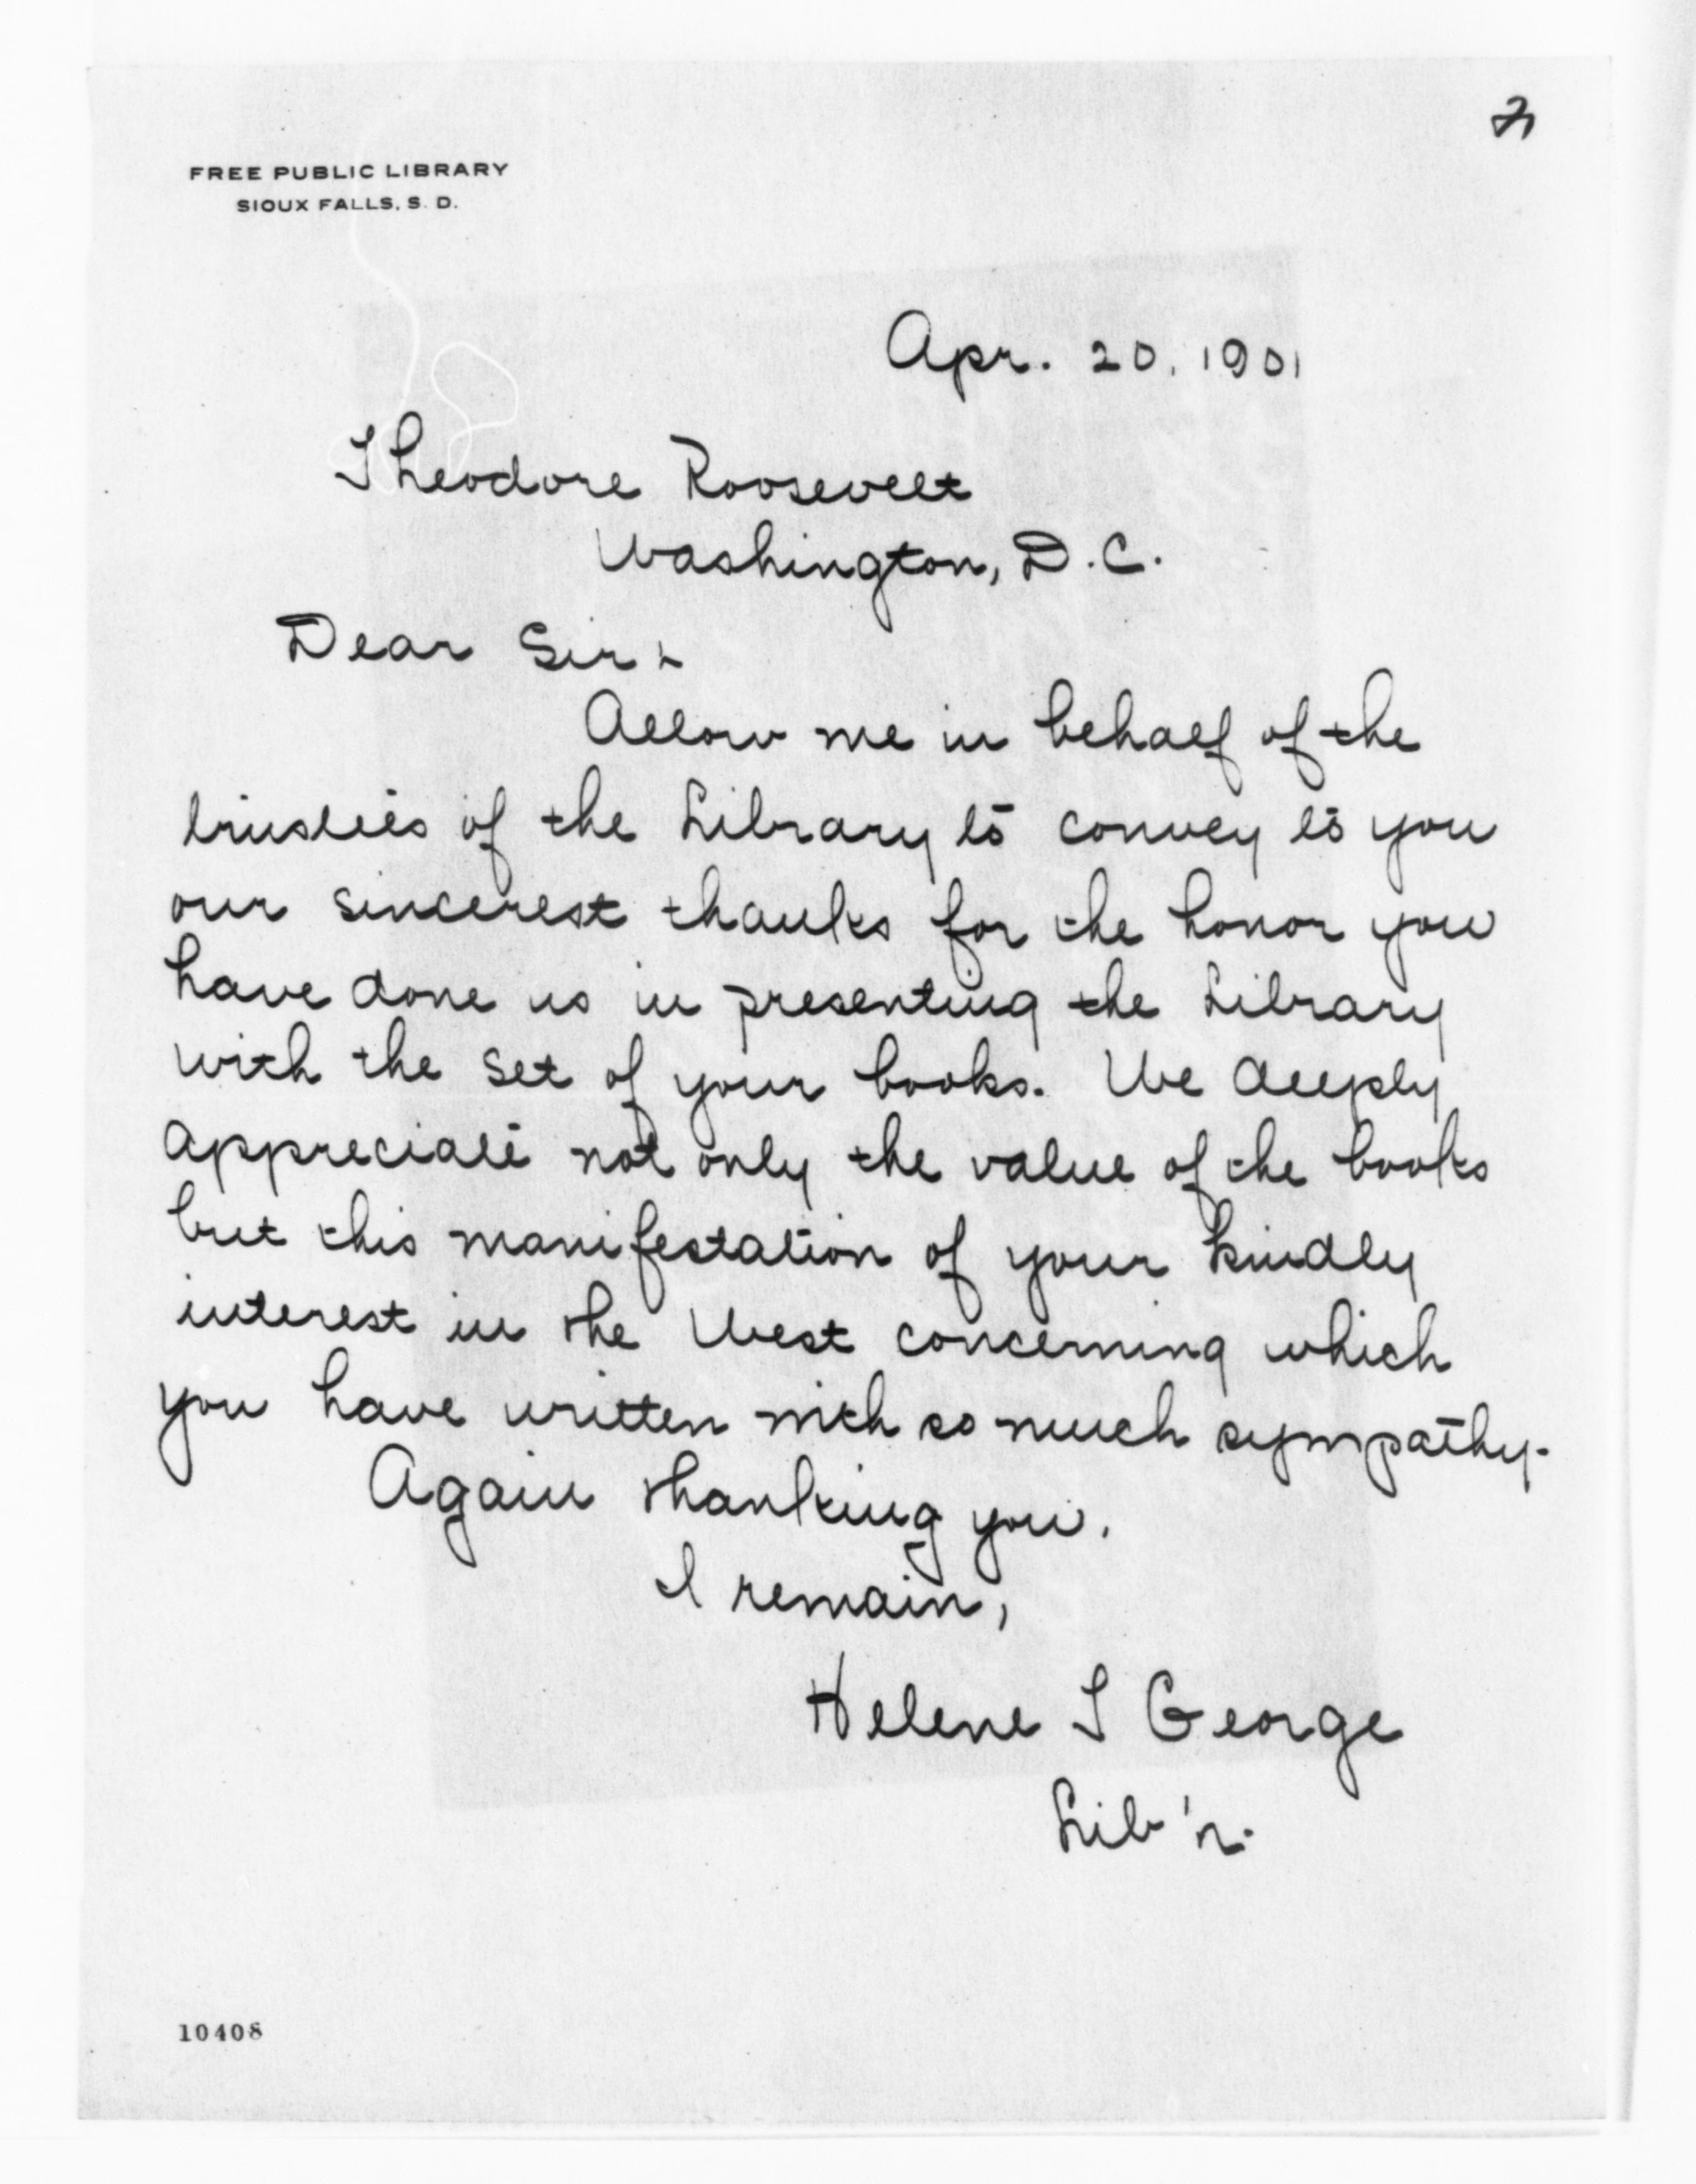 FREE PUBLIC LIBRARY
SIOUX FALLS, S. D.
Apr. 20, 1901
Theodore Roosevelt
Washington, D.C.
Dear Sir:-
Allow me in behalf of the
trustees of the Library to convey to you
our sincerest thanks for the honor you
have done us in presenting the Library
with the set of your books. We deeply
appreciate not only the value of the books
but this manifestation of your kindly
interest in the West concerning which
you have written with so much sympathy.
Again thanking you,
I remain,
Helene S George
Lib'n.
10408